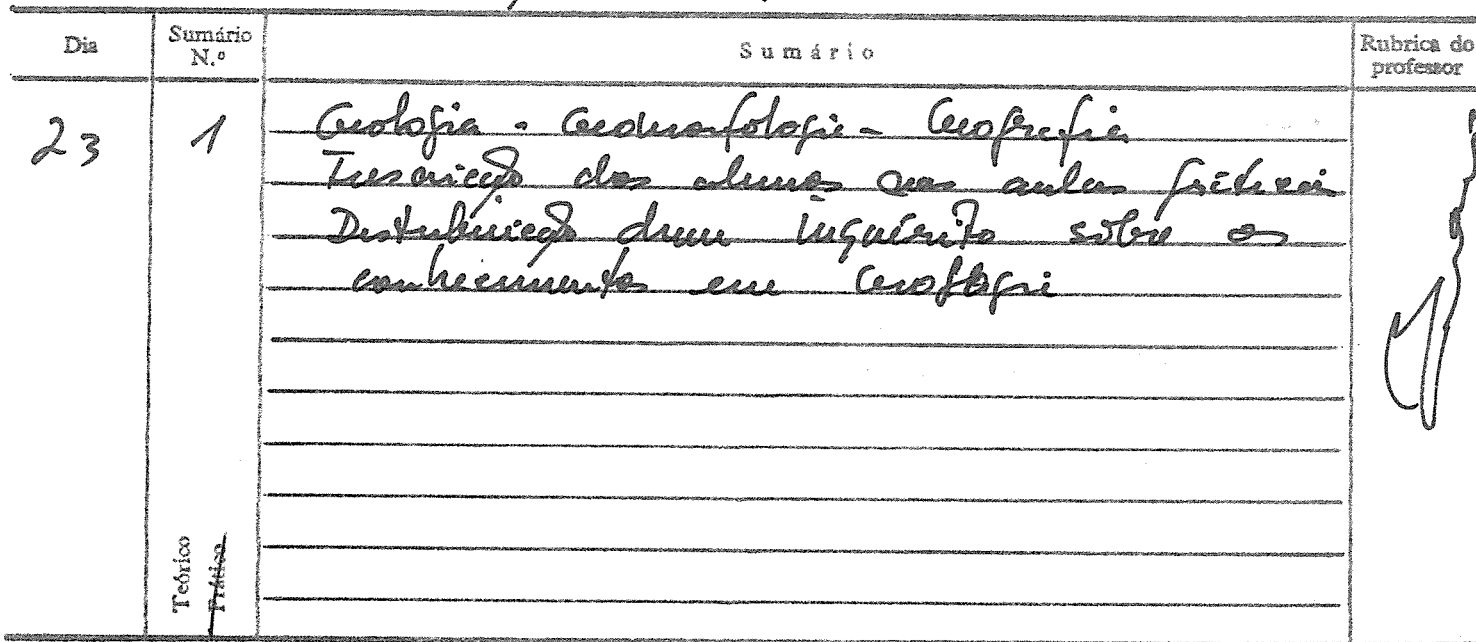 Dia
Sumário N.º
Sumário
Rubrica do professor
23
1
Geologia - Geomorfologia - Geografia
Inscrição dos alunos nas aulas práticas
Distribuição dum inquérito sôbre os
conhecimentos em Geologia
Teórico
Prático